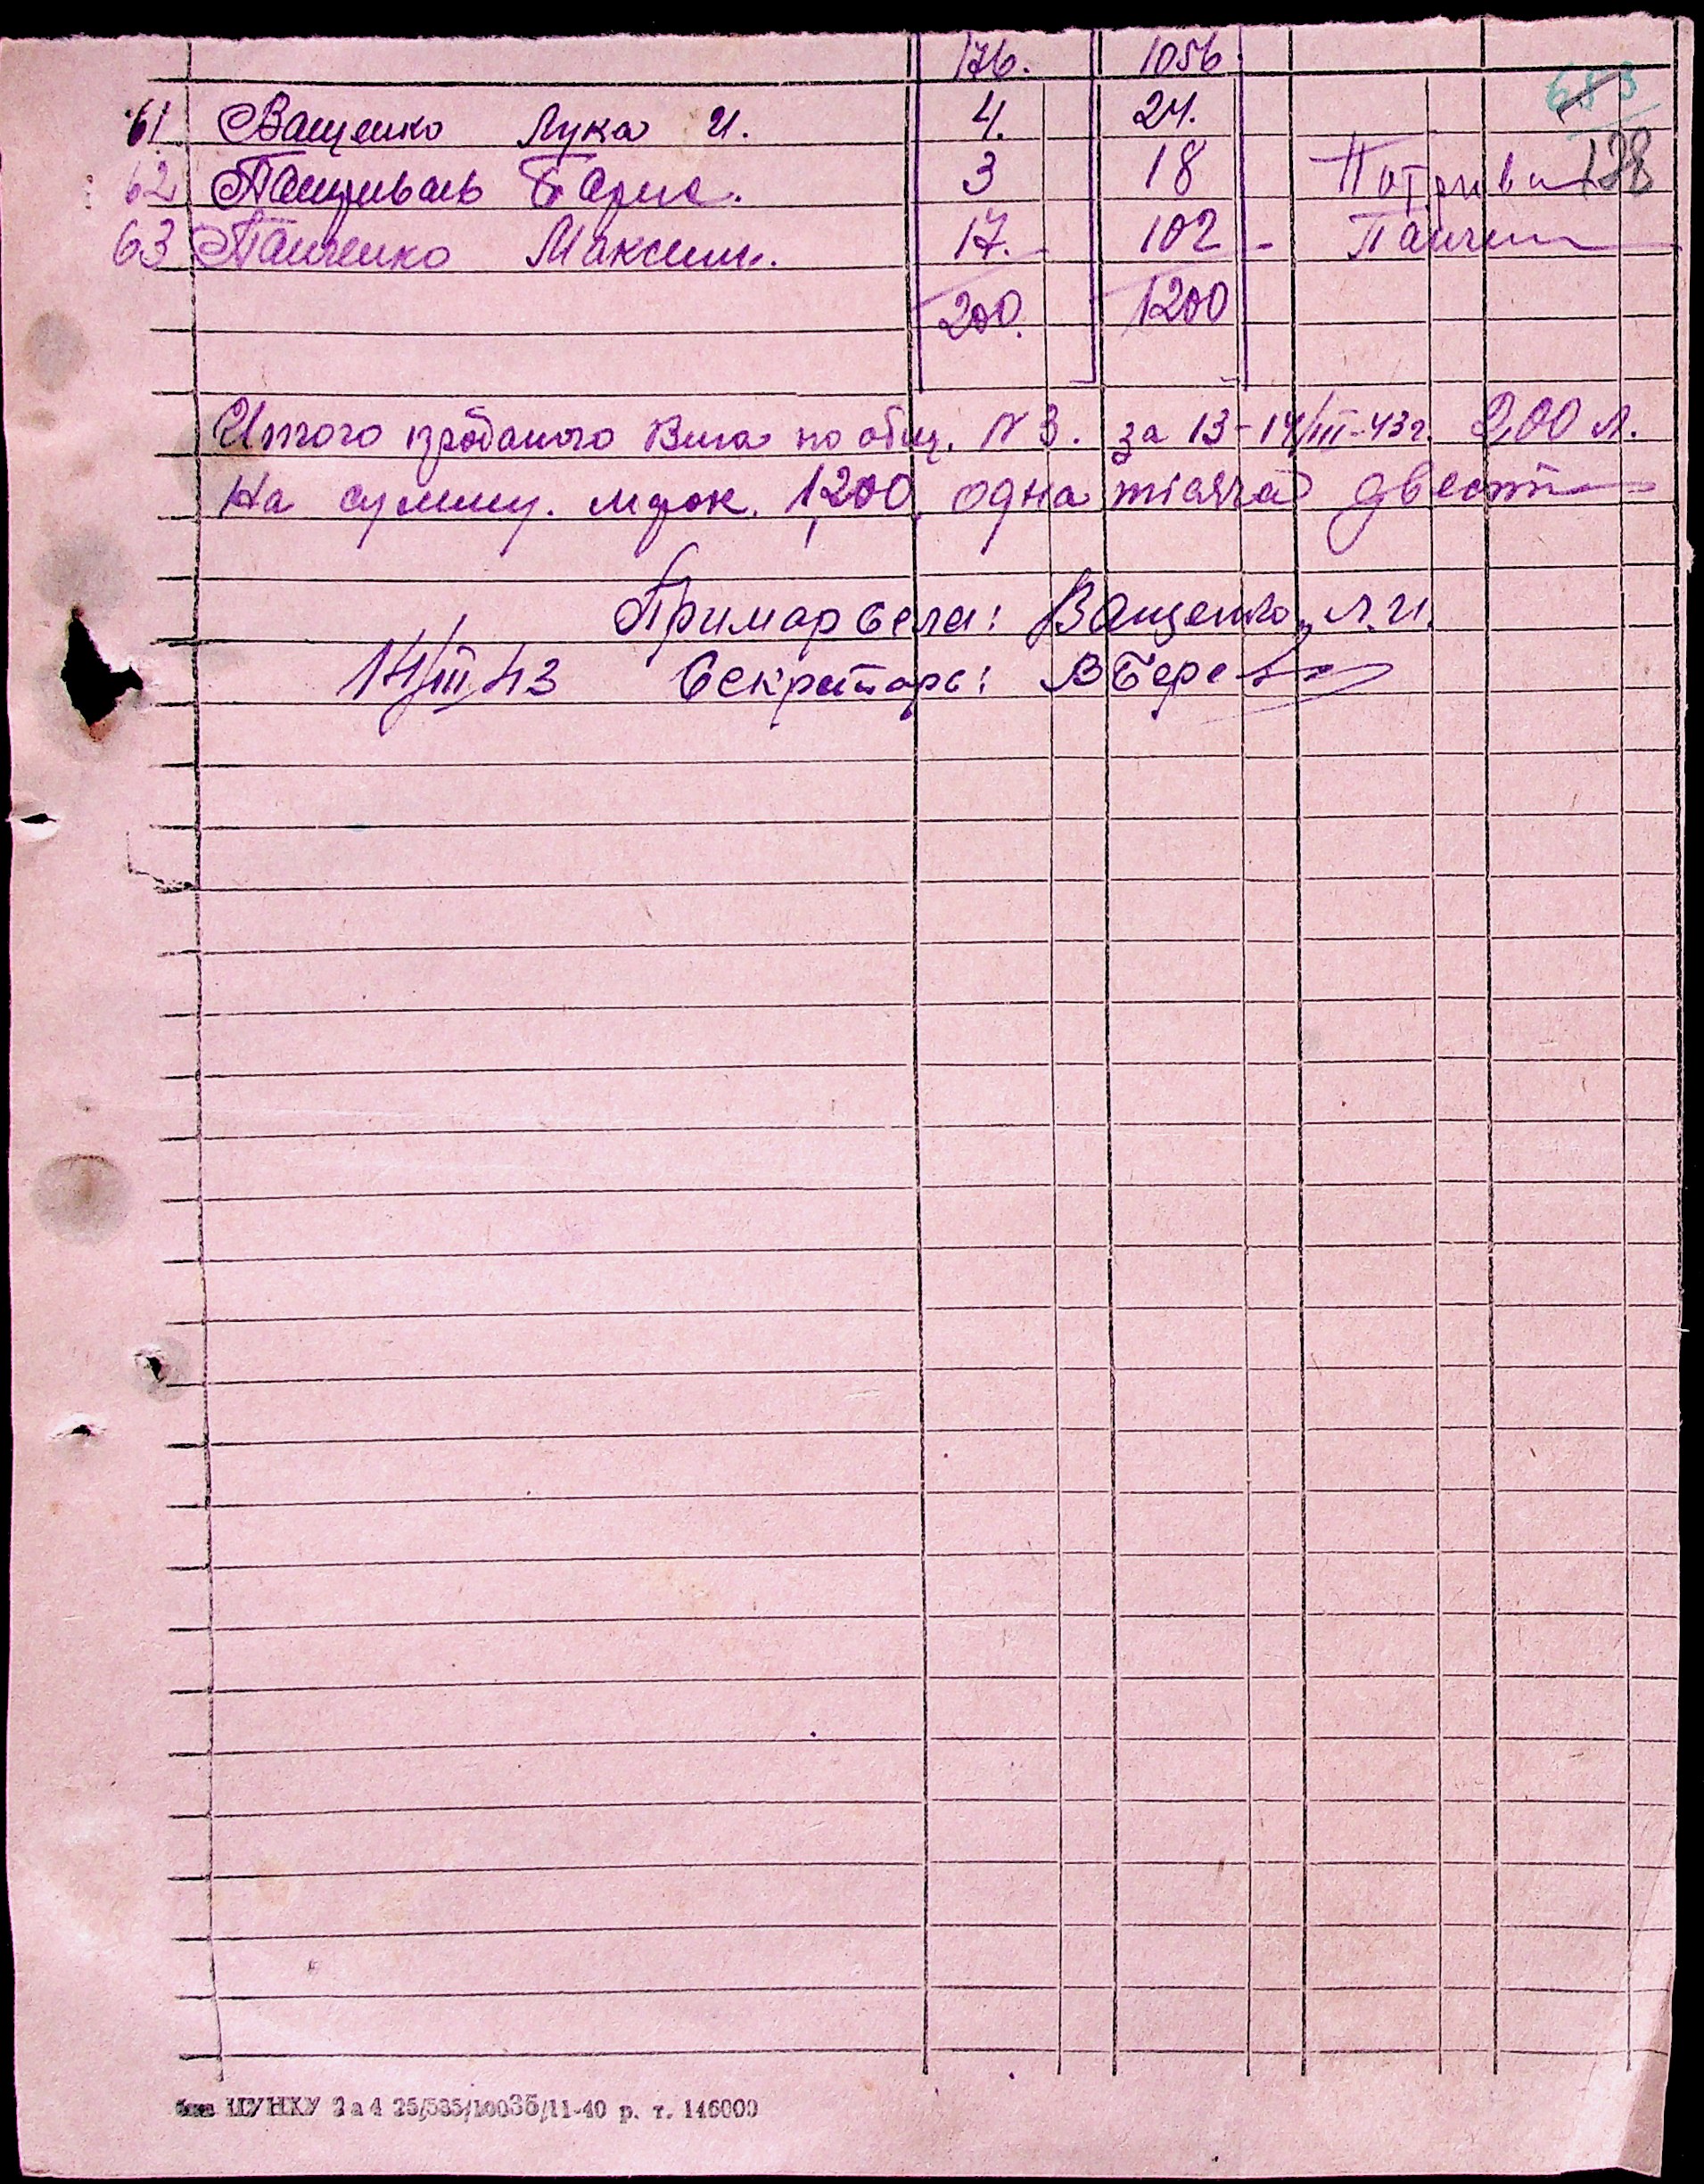 176. 1056.
683
61 Ващенко Лука И. 4. 24.
138
62 Борис. 3 18
63 Панченко Максим. 17. - 102 - Панчен
200. 1200
Итого проданого Вина по общ. N 3. за 13-14/III-43г. 200 л.
На сумму. марок. 1200, одна тисяча двести
Примар села: Ващенко, Л.И.
14/III 43 Секретарь: ВБере
ЦУНКУ 2а4 25/535/10035/11-40 р. т. 146000